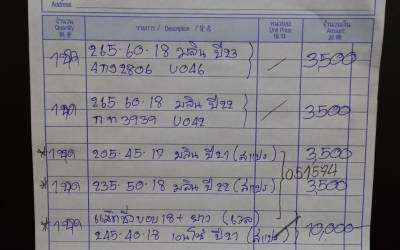 Address
จำนวน Quantity 數量 รายการ / Description / 貨名 หน่วยละ Unit Price 單價 จำนวนเงิน Amount 金額
1ชุด 265-60-18 มลิน ปี23 3,500
4ฑอ2806 U046
1ชุด 265-60-18 มลิน ปี22 3,500
ฑฑ3939 U042
*1ชุด 205-45-17 มลิน ปี21 (สแปร์) 3,500
051574
*1ชุด 235-50-18 มลิน ปี22 (สแปร์) 3,500
ขอบ18+ยาง
*1ชุด 245-40-18 ปี21 (สแปร์) 10,000